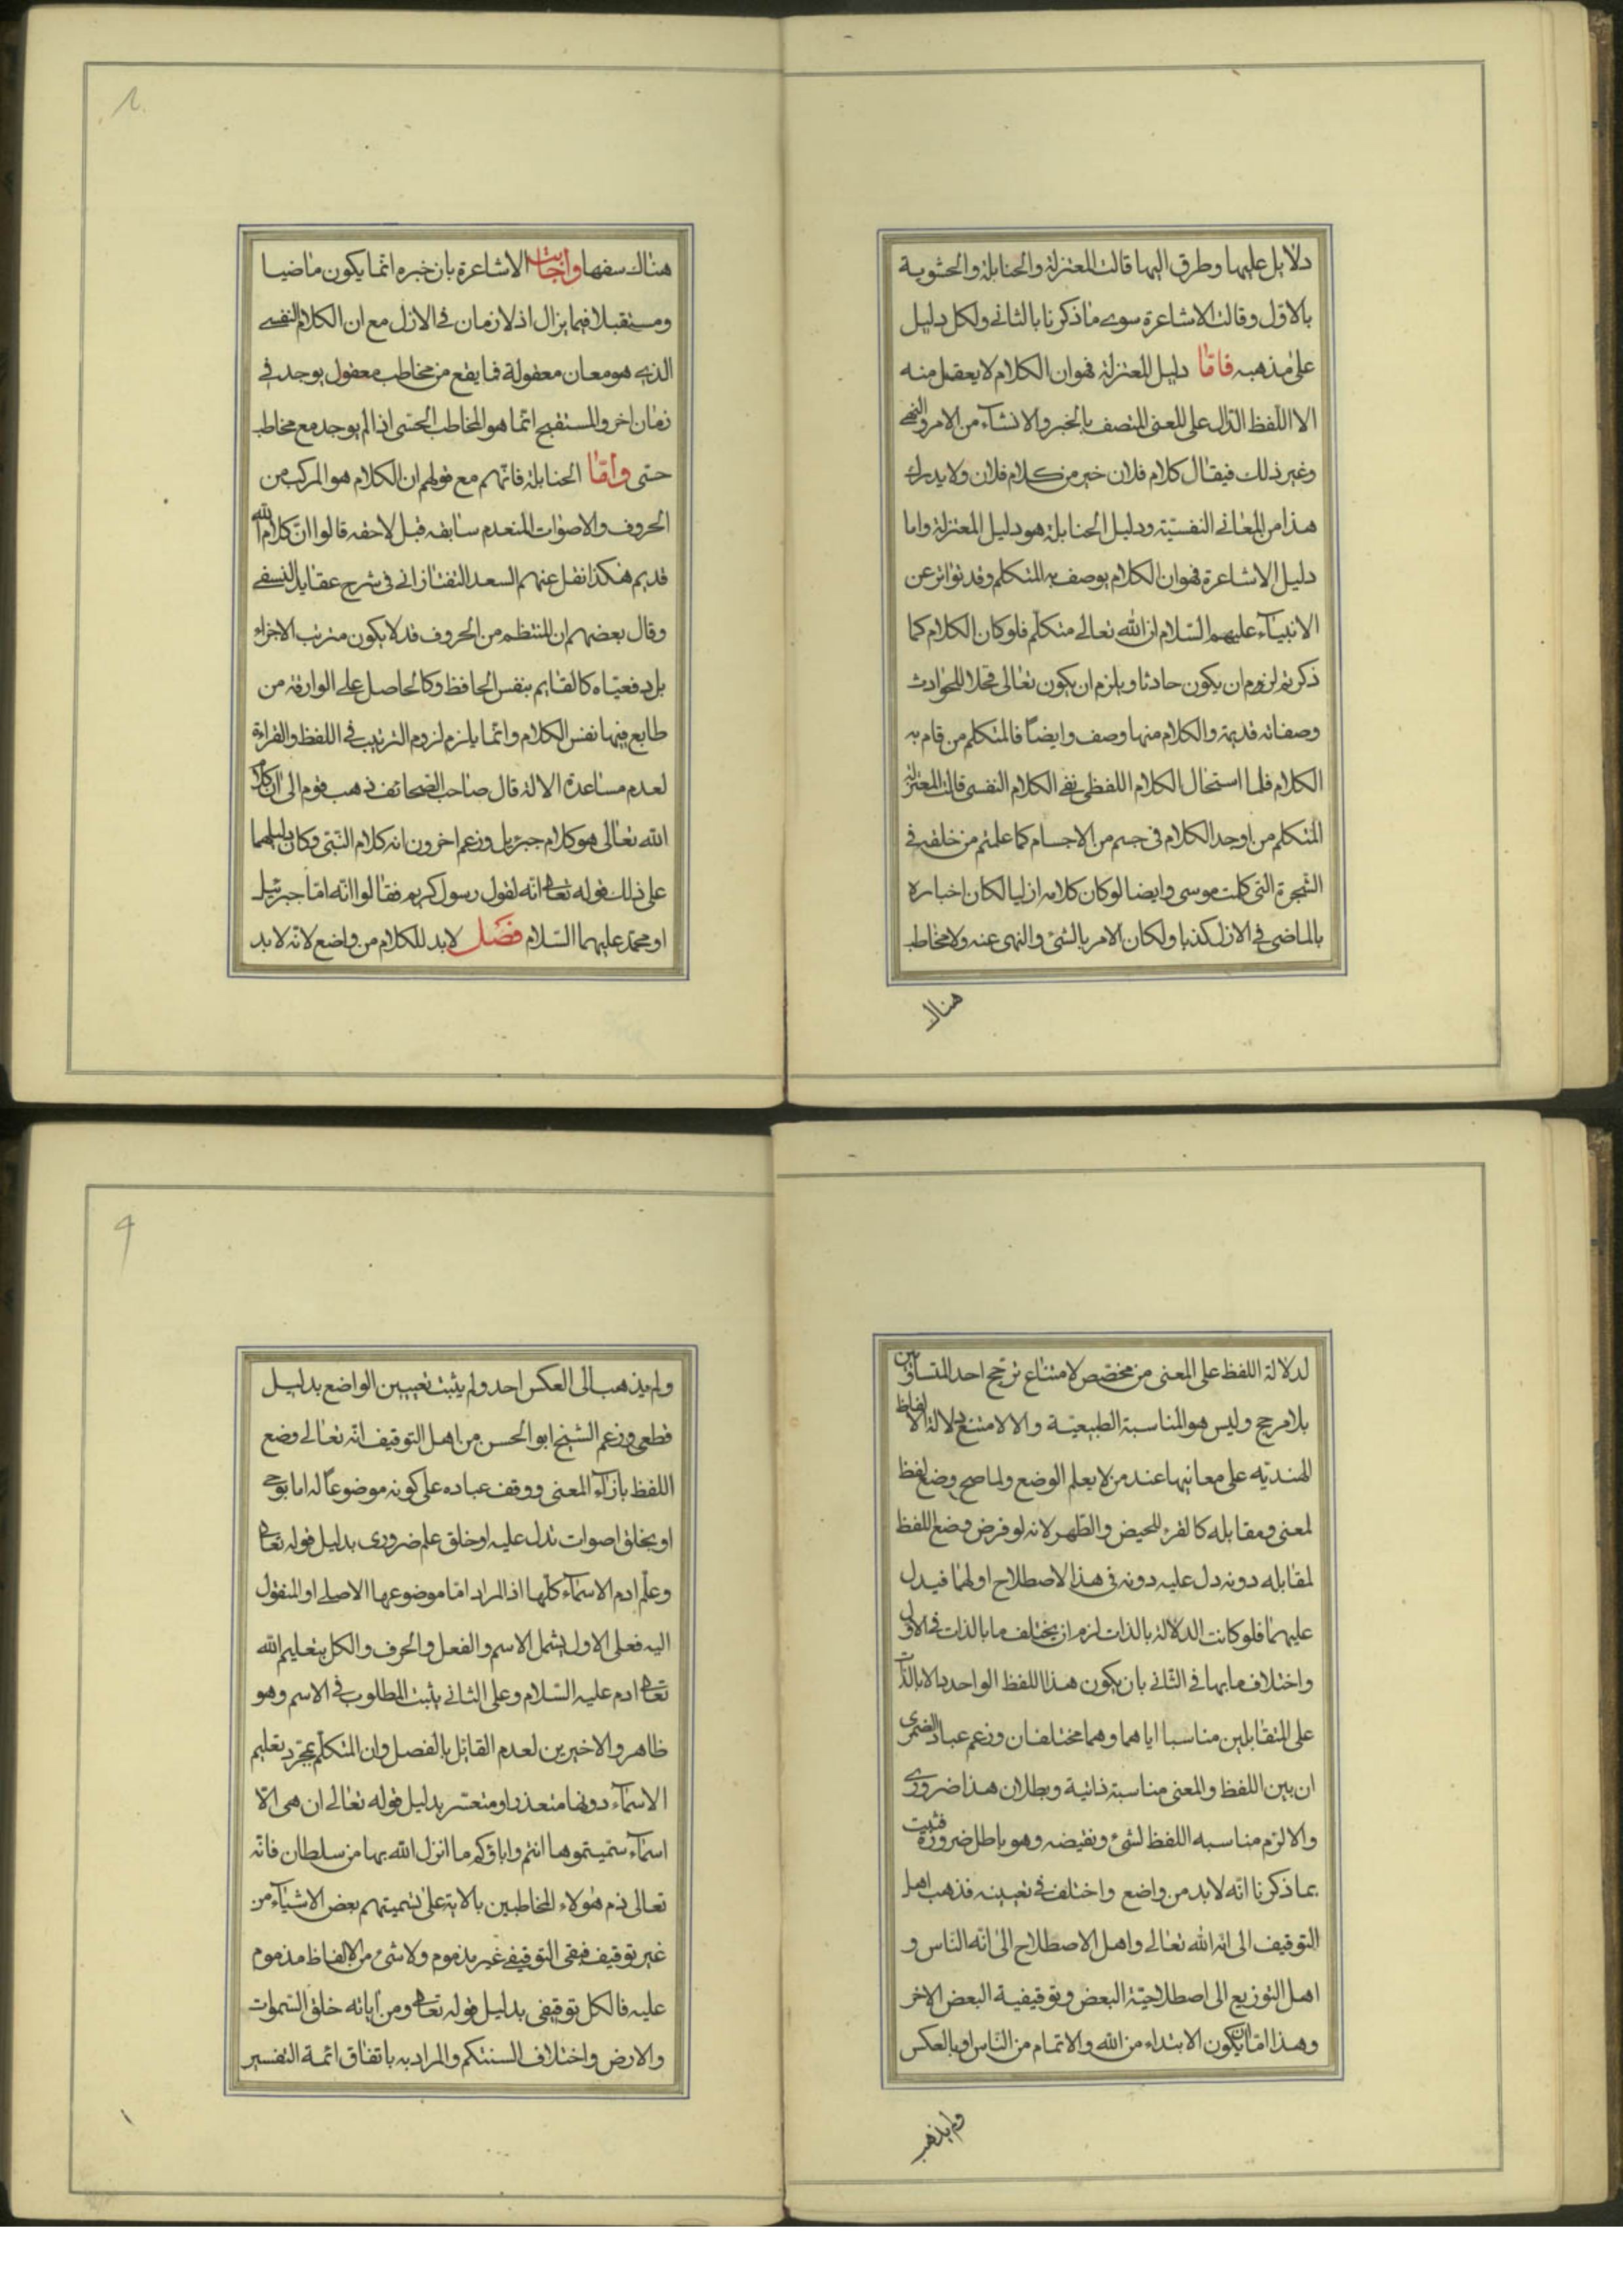 دلايل عليها وطرق اليها قالت المعتزلة والحنابلة والحشوية
بالاول وقالت الاشاعرة سوى ما ذكرنا بالثاني ولكل دليل
على مذهبه فامّا دليل المعتزلة فهو ان الكلام لا يعقل منه
الا اللفظ الدّال على المعنى المتصف بالخبر والانشآء من الامر والنهى
وغير ذلك فيقال كلام فلان خير من كلام فلان ولا يدرك
هذا من المعاني النفسيّة ودليل الحنابلة هو دليل المعتزلة واما
دليل الاشاعرة فهو ان الكلام يوصف به المتكلم وقد تواتر عن
الانبيآء عليهم السّلام ان الله تعالى متكلّم فلو كان الكلام كما
ذكرتم لزم ان يكون حادثا ويلزم ان يكون تعالى محلا للحوادث
وصفاته قديمة والكلام منها وصف وايضاً فالمتكلم من قام به
الكلام فلما استحال الكلام اللفظى بقى الكلام النفسى قالت المعتزلة
المتكلم من اوجد الكلام في جسم من الاجسام كما علمتم من خلقه في
الشجرة التى كلمت موسى وايضا لو كان كلامه ازليا لكان اخباره
بالماضى في الازل كذبا ولكان الامر بالشئ والنهى عنه ولا مخاطب
هناك
هناك سفها واجابت الاشاعرة بان خبره انّما يكون ماضيا
ومستقبلا فيما يزال اذ لا زمان في الازل مع ان الكلام النفسى
الذى هو معان معقولة فما يقع من مخاطب معقول يوجد في
زمان اخر والمستقبح انّما هو المخاطب الحسّى اذا لم يوجد مع مخاطب
حتى وامّا الحنابلة فانّهم مع قولهم ان الكلام هو المركب من
الحروف والاصوات المنعدم سابقه قبل لاحقه قالوا انّ كلام الله
قديم هكذا نقل عنهم السعد التفتازاني في شرح عقايد النسفى
وقال بعضهم ان المنتظم من الحروف قد لا يكون مترتب الاجزاء
بل دفعيّا كالقايم بنفس الحافظ وكالحاصل على الورقة من
طابع فيها نفس الكلام وانّما يلزم لزوم الترتيب في اللفظ والقراءة
لعدم مساعدة الالة قال صاحب الصحائف ذهب قوم الى ان كلام
الله تعالى هو كلام جبرئيل وزعم اخرون انه كلام النّبىّ وكان دليلهما
على ذلك قوله تعالى انّه لقول رسول كريم فقالوا انّه امّا جبرئيل
او محمّد عليهما السّلام فصل لا بد للكلام من واضع لانّه لا بد
لدلالة اللفظ على المعنى من مخصّص لامتناع ترجّح احد المتساويين
بلا مرجح وليس هو المناسبة الطبيعيّة والا لامتنع دلالة الالفاظ
الهنديّه على معانيها عند من لا يعلم الوضع ولما صح وضع لفظ
لمعنى ومقابله كالقرء للحيض والطّهر لانه لو فرض وضع اللفظ
لمقابله دونه دل عليه دونه في هذا الاصطلاح او لهما فيدل
عليهما فلو كانت الدلالة بالذات لزم ان يختلف ما بالذات في الاوّل
واختلاف ما بها في الثّاني بان يكون هذا اللفظ الواحد دالا بالذّات
على المتقابلين مناسبا اياهما وهما مختلفان وزعم عباد الضمرى
ان بين اللفظ والمعنى مناسبة ذاتية وبطلان هذا ضرورى
والا لزم مناسبه اللفظ لشئ ونقيضه وهو باطل ضرورة فثبت
بما ذكرنا انّه لا بد من واضع واختلف في تعيينه فذهب اهل
التوقيف الى انه الله تعالى واهل الاصطلاح الى انّه النّاس و
اهل التوزيع الى اصطلاحيّة البعض وتوقيفية البعض الاخر
وهذا امّا ان يكون الابتداء من الله والاتمام من النّاس او بالعكس
ولم يذهب
ولم يذهب الى العكس احد ولم يثبت تعيين الواضع بدليل
قطعى وزعم الشيخ ابو الحسن من اهل التوقيف انّه تعالى وضع
اللفظ بازآء المعنى ووقف عباده على كونه موضوعاً له اما بوحى
او بخلق اصوات تدل عليه او خلق علم ضرورى بدليل قوله تعالى
وعلّم ادم الاسمآء كلّها اذ المراد امّا موضوعها الاصلى او المنقول
اليه فعلى الاول يشمل الاسم والفعل والحرف والكل بتعليم الله
تعالى ادم عليه السّلام وعلى الثانى يثبت المطلوب في الاسم وهو
ظاهر والاخيرين لعدم القائل بالفصل وان المتكلّم بمجرّد تعليم
الاسمآء دونها متعذر او متعسّر بدليل قوله تعالى ان هى الّا
اسمآء سمّيتموها انتم واباؤكم ما انزل الله بها من سلطان فانّه
تعالى ذم هؤلاء المخاطبين بالاية على تسميتهم بعض الاشيآء من
غير توقيف فبقى التوقيفى غير مذموم ولا شئ من الالفاظ مذموم
عليه فالكل توقيفى بدليل قوله تعالى ومن اياته خلق السّموات
والارض واختلاف السنتكم والمراد به باتفاق ائمة التفسير